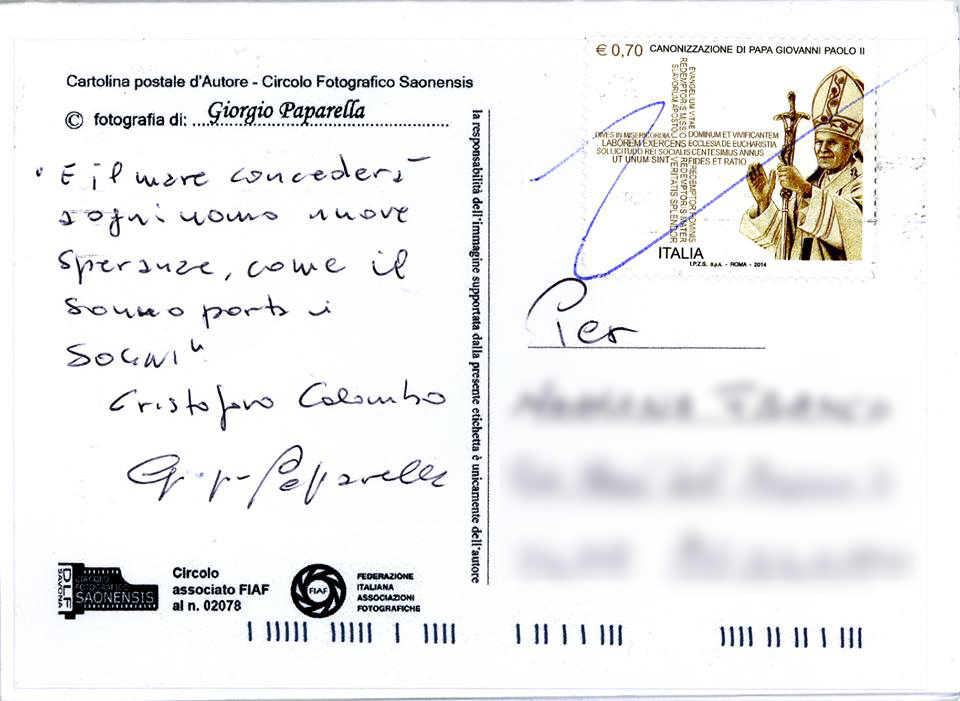 Cartolina postale d'Autore - Circolo Fotografico Saonensis
© fotografia di: ....Giorgio Paparella....
"E il mare concederà
a ogni uomo nuove
speranze, come il
sonno porta i
sogni"
Cristoforo Colombo
Paparella
la responsabilità dell'immagine supportata dalla presente etichetta è unicamente dell'autore
DLF
SAVONA
CIRCOLO
FOTOGRAFICO
SAONENSIS
Circolo
associato FIAF
al n. 02078
FIAF
FEDERAZIONE
ITALIANA
ASSOCIAZIONI
FOTOGRAFICHE
€ 0,70 CANONIZZAZIONE DI PAPA GIOVANNI PAOLO II
EVANGELIUM VITAE
REDEMPTORIS MISSIO
SLAVORUM APOSTOLI
DIVES IN MISERICORDIA DOMINUM ET VIVIFICANTEM
LABOREM EXERCENS ECCLESIA DE EUCHARISTIA
SOLLICITUDO REI SOCIALIS CENTESIMUS ANNUS
UT UNUM SINT FIDES ET RATIO
REDEMPTOR HOMINIS
REDEMPTORIS MATER
VERITATIS SPLENDOR
ITALIA
I.P.Z.S. S.p.A. - ROMA - 2014
Per